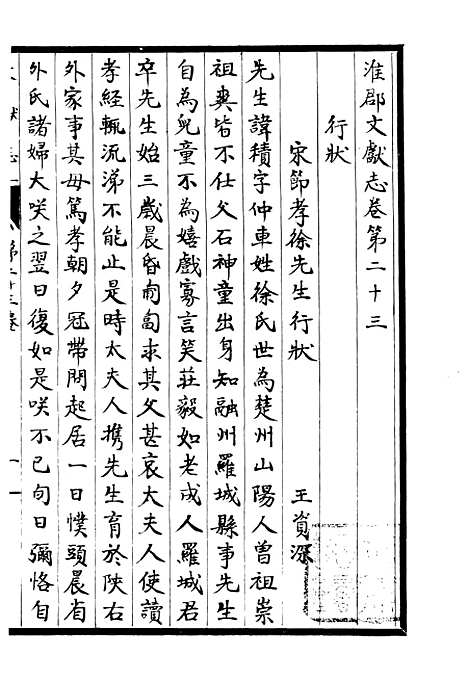 淮郡文獻志卷第二十三
行狀
宋節孝徐先生行狀　王資深
先生諱積字仲車姓徐氏世為楚州山陽人曾祖崇
祖爽皆不仕父石神童出身知融州羅城縣事先生
自為兒童不為嬉戲寡言笑莊毅如老成人羅城君
卒先生始三歲晨昏匍匐求其父甚哀太夫人使讀
孝經輒流涕不能止是時太夫人携先生育於陝右
外家事其母篤孝朝夕冠帶問起居一日幞頭晨省
外氏諸婦大咲之翌日復如是咲不已旬日彌恪自